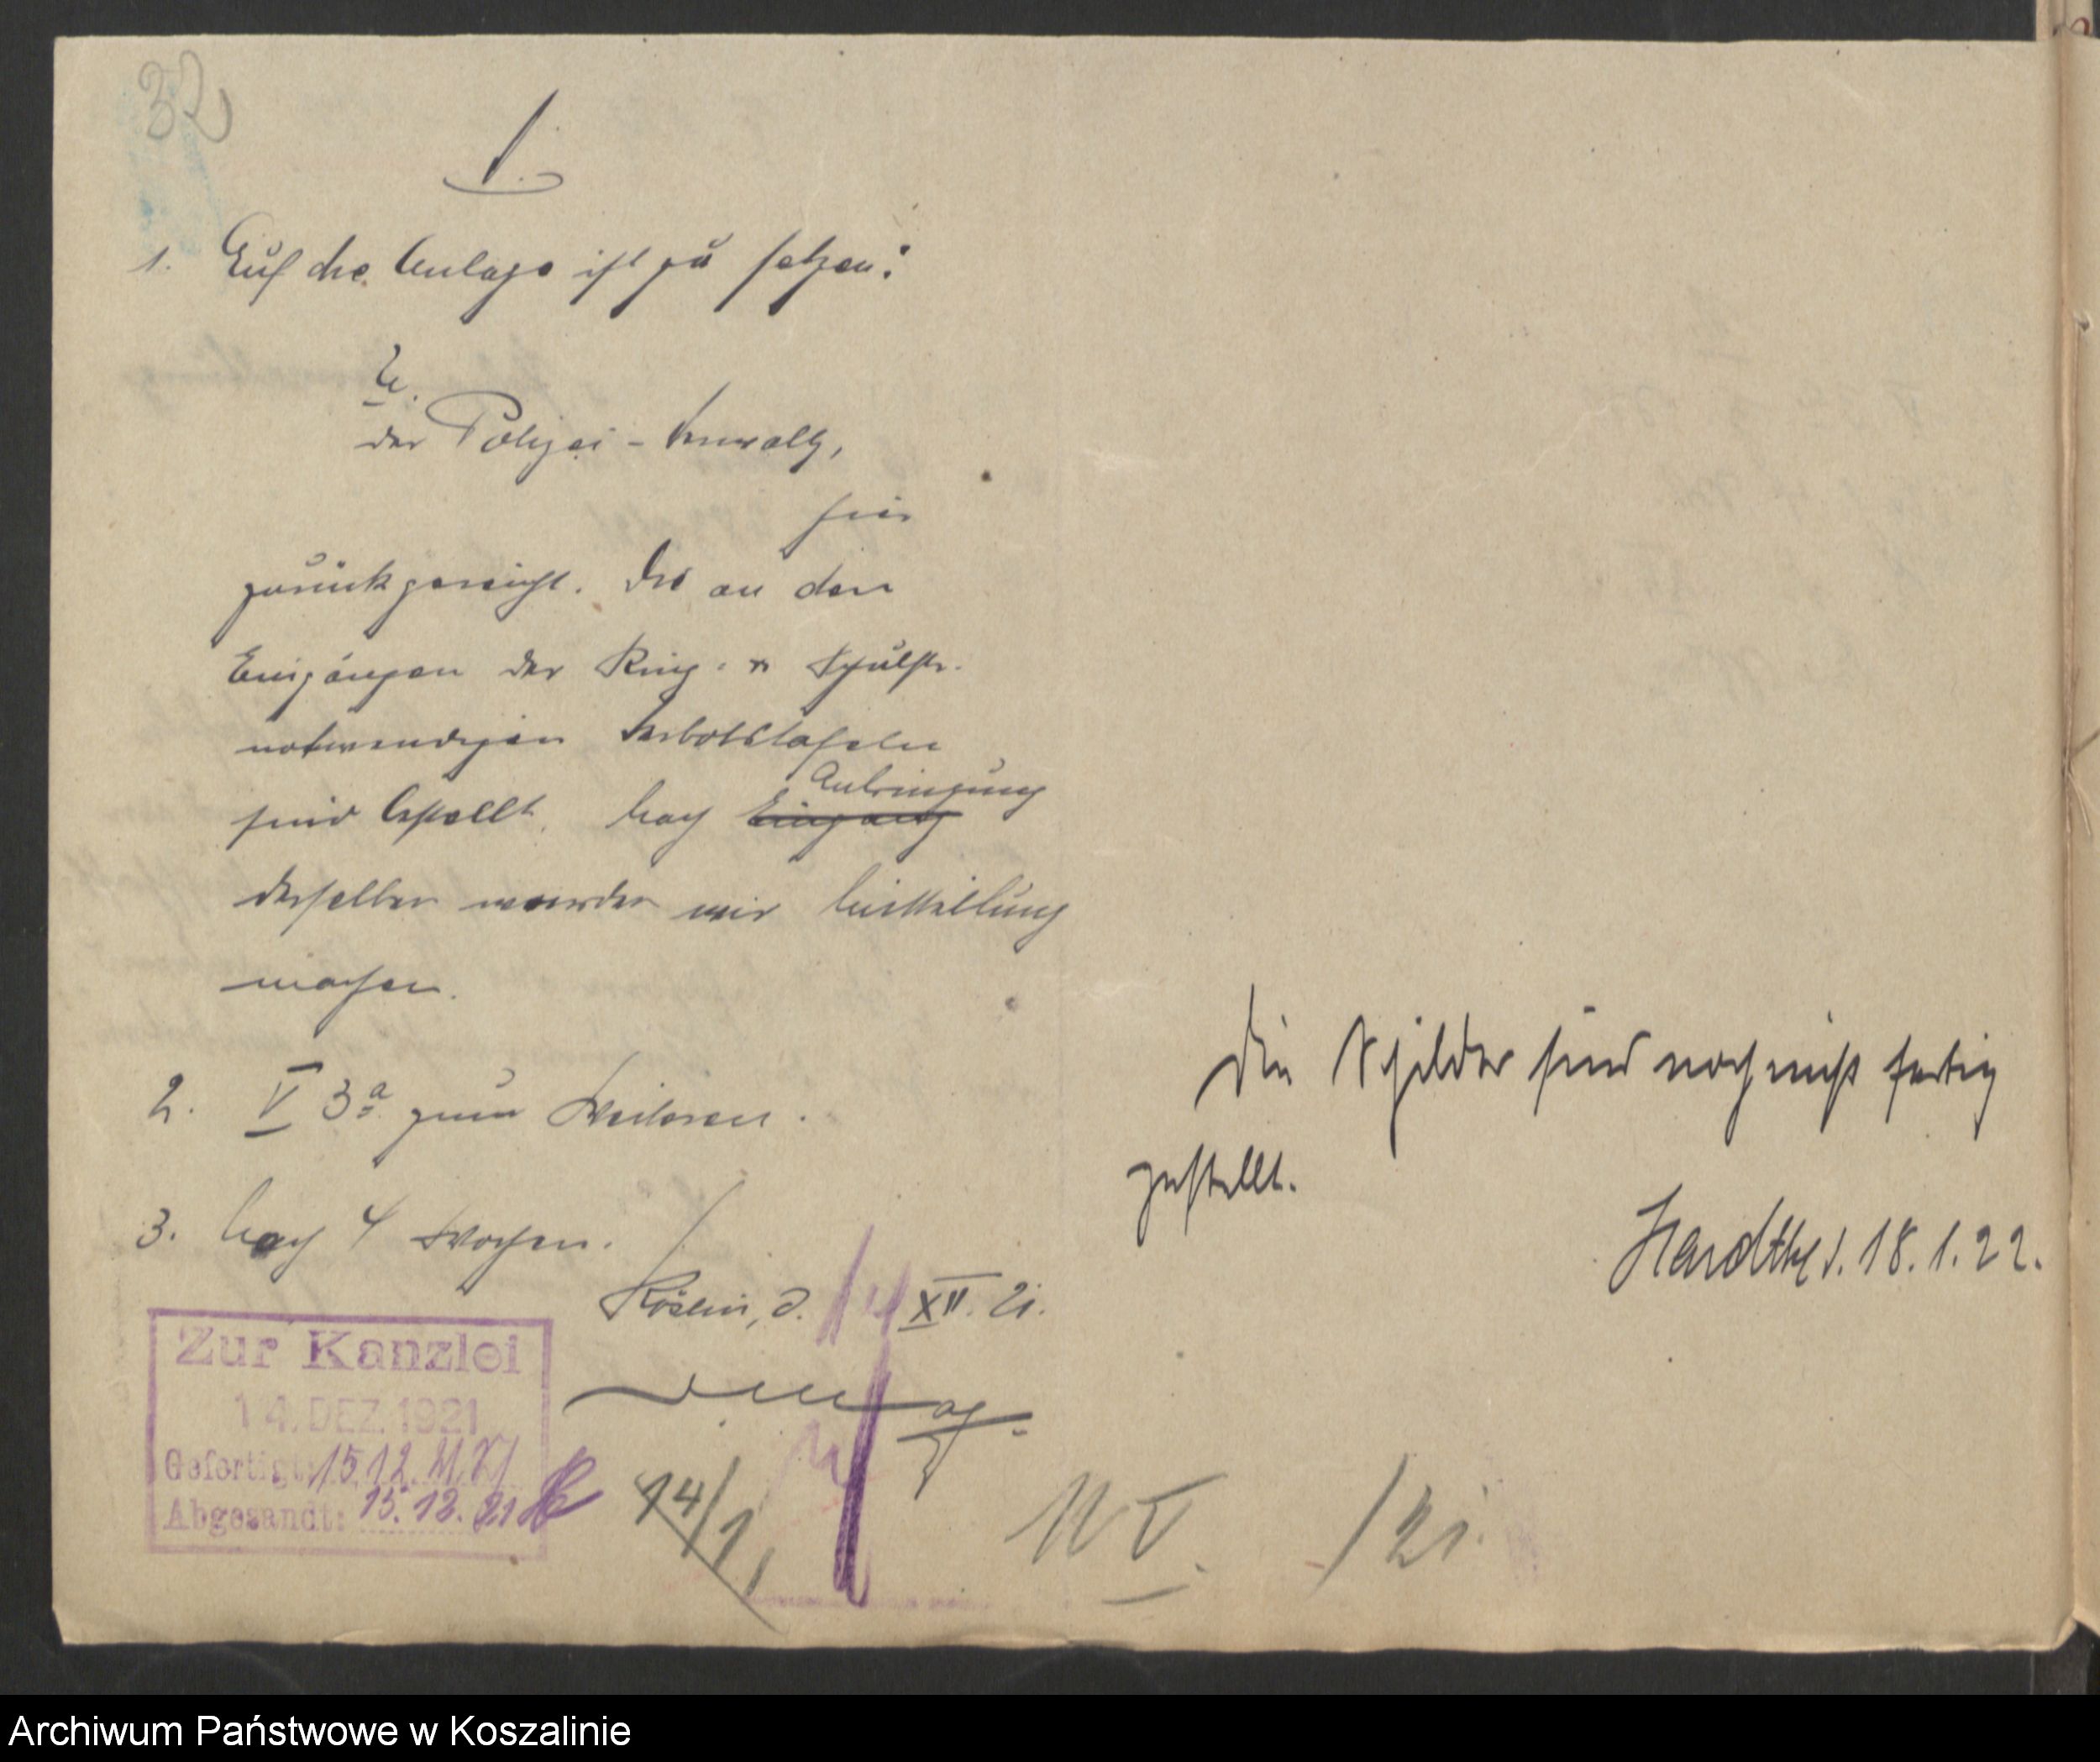 32
1. Auf die Anlage ist zu setzen:
U.
der Polizei-Verwaltg,
hier
zurückgereicht. Die an den
Eingängen der Ring- u. Schulstr.
notwendigen Verbotstafeln
Anbringung
sind bestellt. Nach Eingang
derselben werden wir Mitteilung
machen.
2. V 3a zum Weiteren.
3. Nach 4 Wochen.
Köslin, d. 14 XII. 21.
Zur Kanzlei
14. DEZ. 1921
Gefertigt: 15.12.
Abgesandt: 15.12.21
14/1
Die Schilder sind noch nicht fertig
gestellt.
Hardtke 18.1.22.